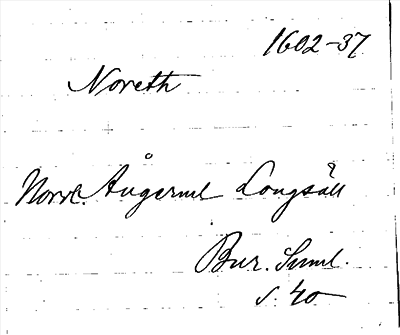 1602-37
Noreth
Norrl. Ångerml Långsåll
Bur. Saml.
s. 40